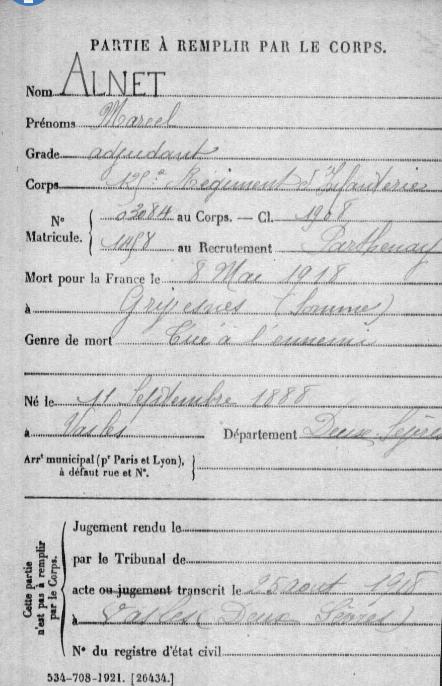 PARTIE À REMPLIR PAR LE CORPS.
Nom ALNET
Prénoms Marcel
Grade adjudant
Corps 125e Régiment d'Infanterie
N° Matricule. { 03084 au Corps. — Cl. 1908
1498 au Recrutement Parthenay
Mort pour la France le 8 Mai 1918
à Grivesnes (Somme)
Genre de mort Tué à l'ennemi
Né le 11 Septembre 1888
à Vasles Département Deux Sèvres
Arrt municipal (pr Paris et Lyon), à défaut rue et N°. }
Cette partie n'est pas à remplir par le Corps. {
Jugement rendu le
par le Tribunal de
acte ou jugement transcrit le 25 aout 1918
à Vasles (Deux Sèvres)
N° du registre d'état civil
534-708-1921. [26434.]